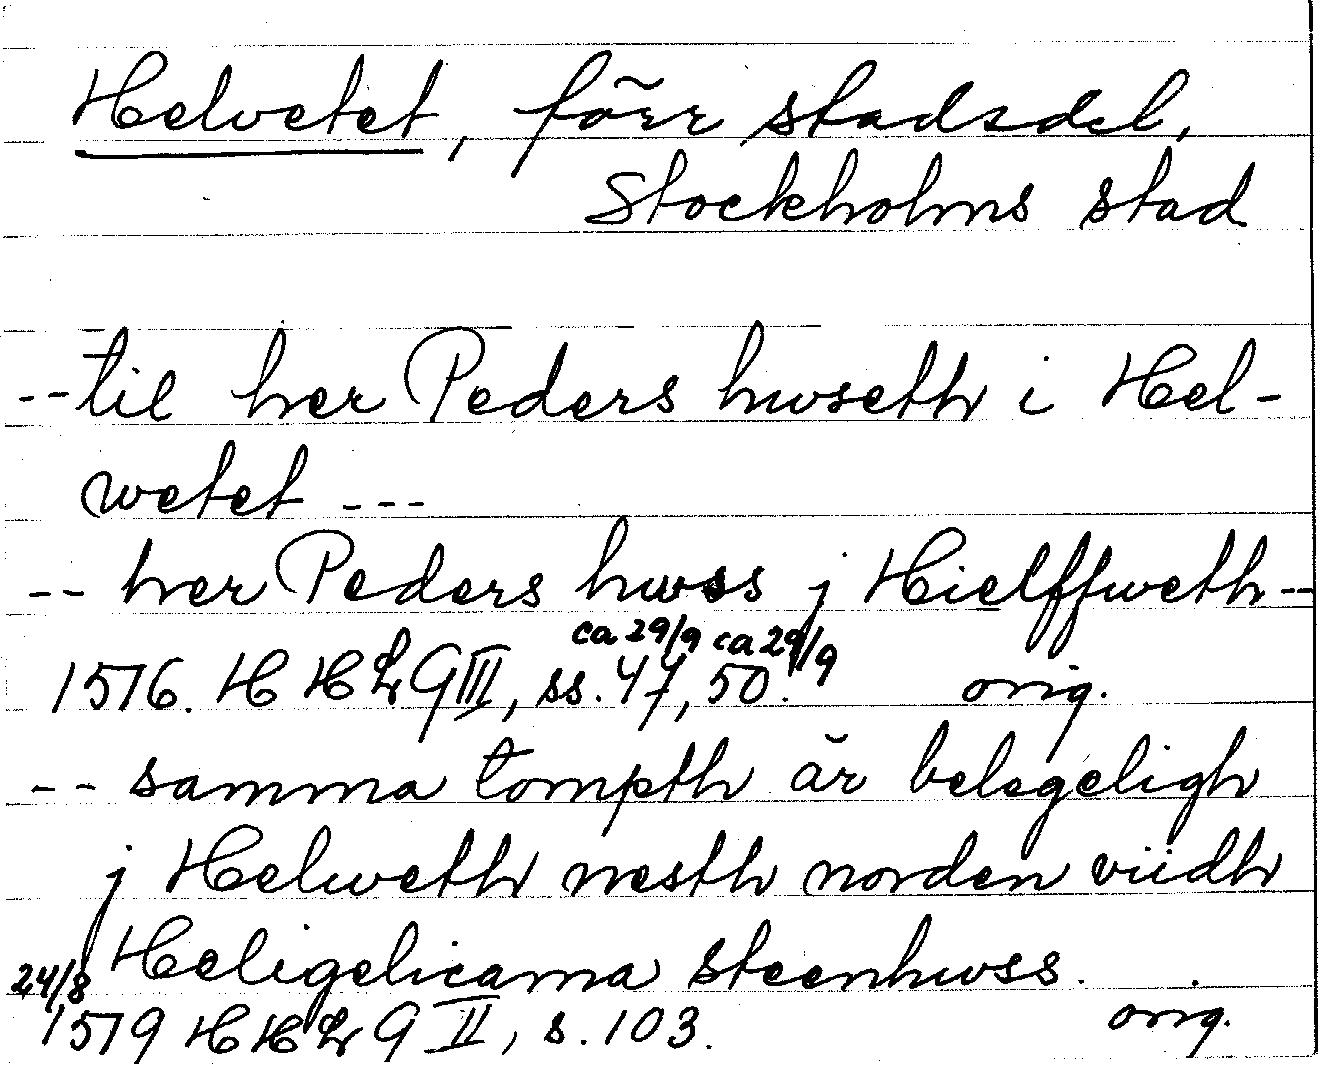 Helvetet, förr stadsdel,
Stockholms stad
-- til her Peders hwseth i Hel-
wetet ---
-- her Peders hwss j Hielffweth --
ca 29/9 ca 29/9
1576. H H Lr 9 III, ss. 47, 50. orig.
-- samma tompth är belegeligh
j Helweth nesth norden viidh
Heligelicama steenhwss.
24/8
1579 H H Lr 9 II, s. 103. orig.